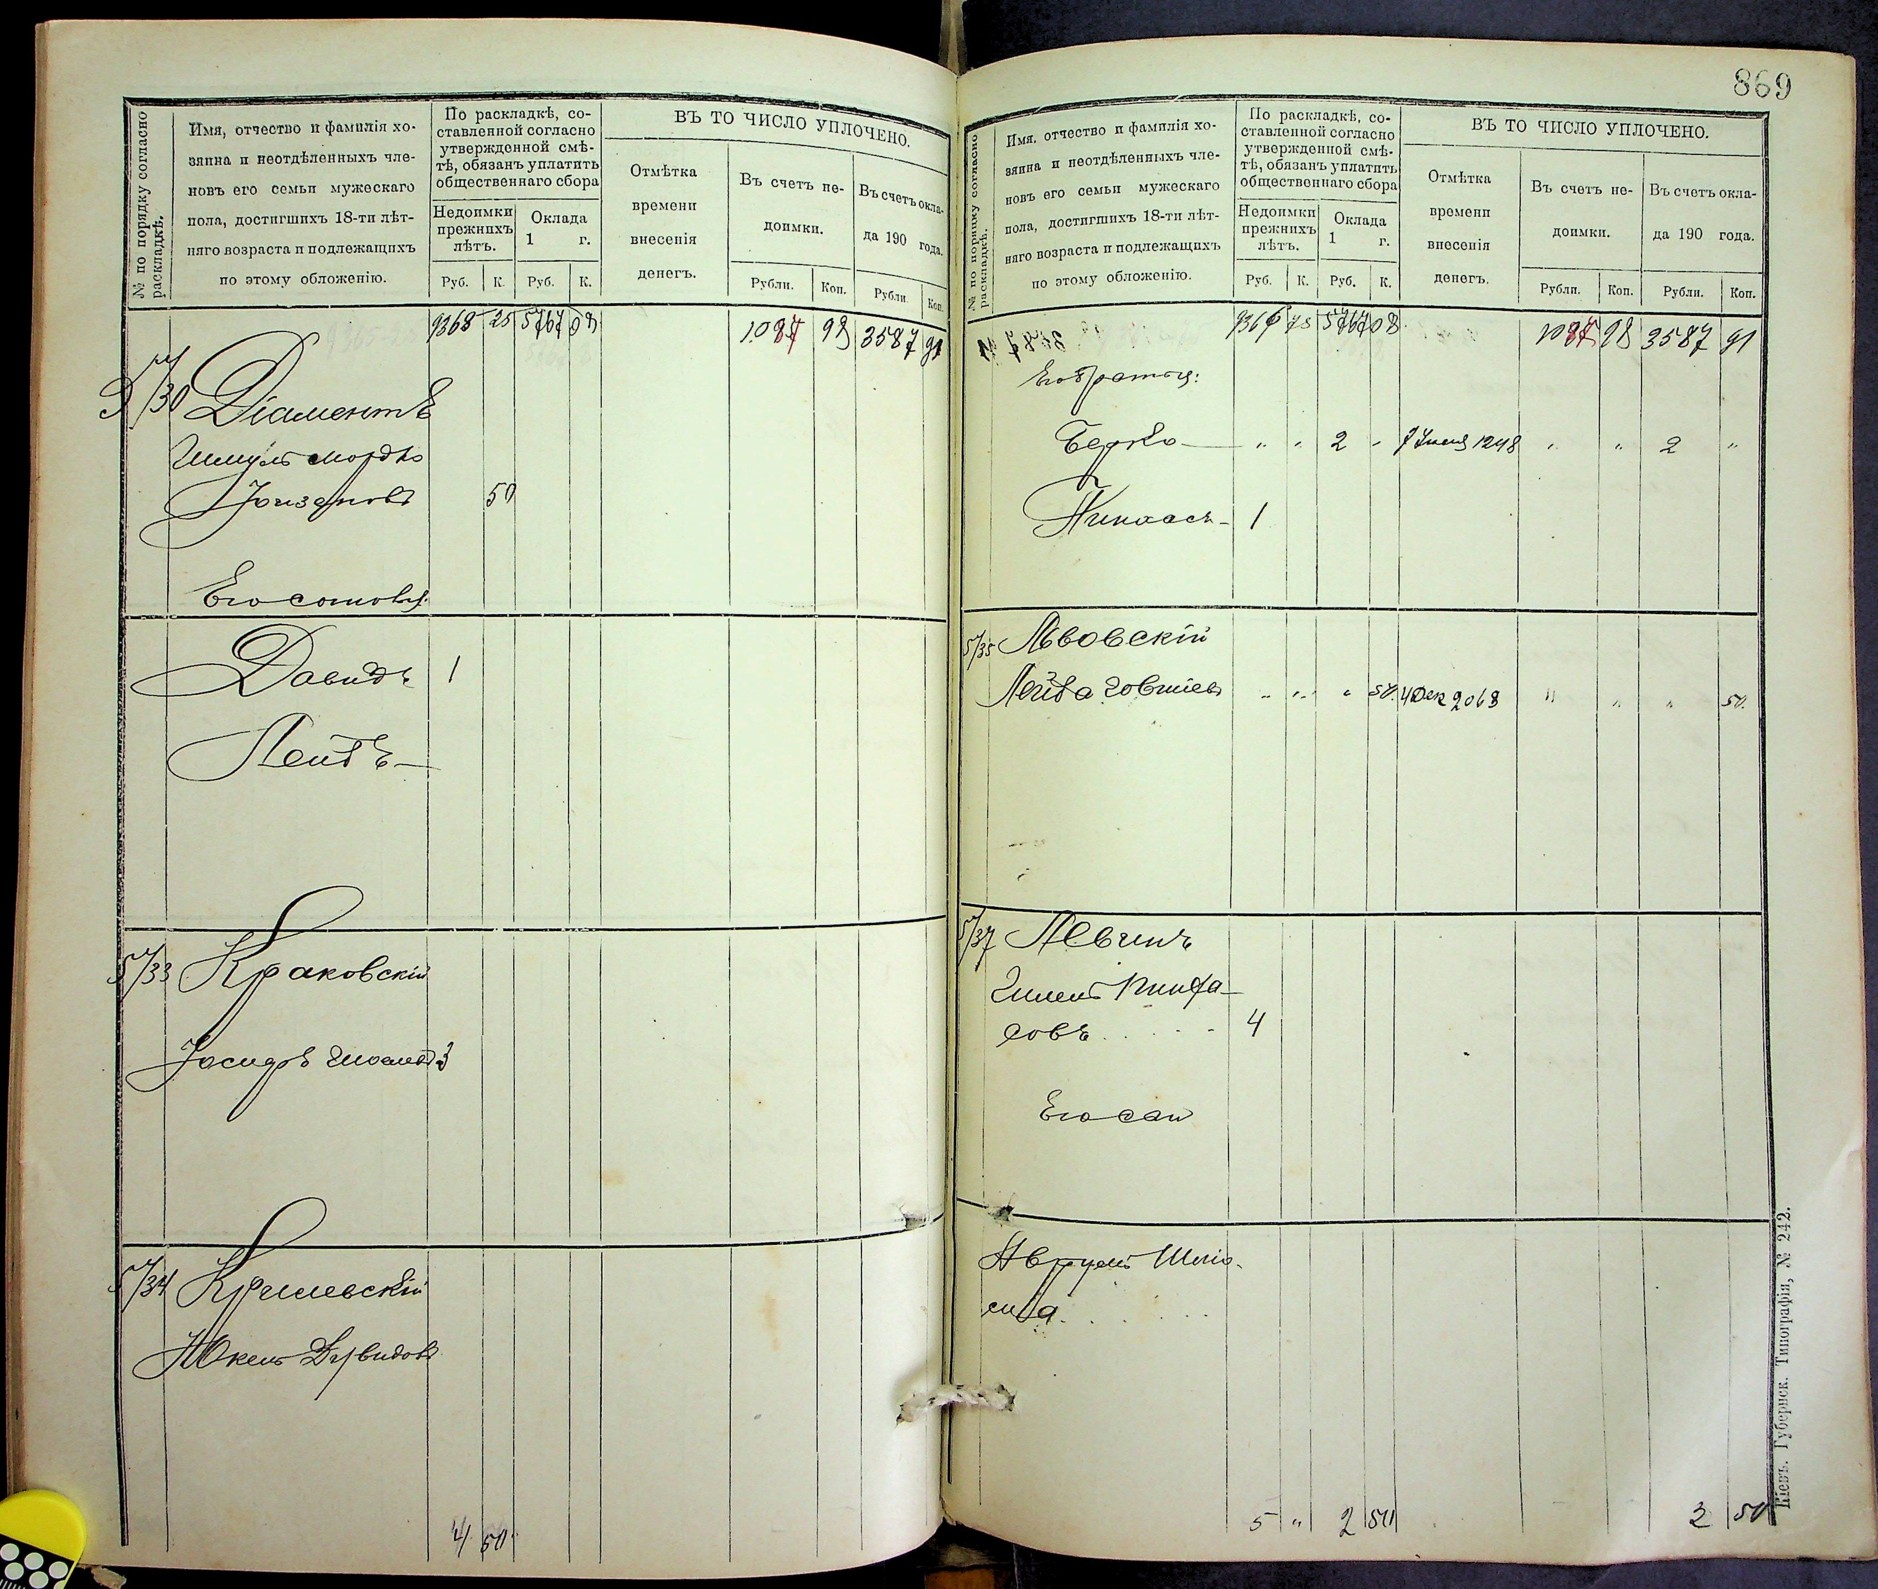 № по порядку согласно
раскладкѣ.
Имя, отчество и фамилія хо-
зяина и неотдѣленныхъ чле-
новъ его семьи мужескаго
пола, достигшихъ 18-ти лѣт-
няго возраста и подлежащихъ
по этому обложенію.
По раскладкѣ, со-
ставленной согласно
утвержденной смѣ-
тѣ, обязанъ уплатить
общественнаго сбора
Недоимки
прежнихъ
лѣтъ.
Оклада
1 г.
Руб. К. Руб. К.
ВЪ ТО ЧИСЛО УПЛОЧЕНО.
Отмѣтка
времени
внесенія
денегъ.
Въ счетъ не-
доимки.
Рубли. Коп.
Въ счетъ окла-
да 190 года.
Рубли Коп.
9368 25 5767 08 1087 98 3587 91
5/30 Діаментъ
Шмуль Мордко
50
Его сыновья:
Давидъ 1
Лейбъ —
5/33 Краковскій
Іосифъ 3
5/34 Крилевскій
Юкель Дувидовъ
4 50
869
№ по порядку согласно
раскладкѣ.
Имя, отчество и фамилія хо-
зяина и неотдѣленныхъ чле-
новъ его семьи мужескаго
пола, достигшихъ 18-ти лѣт-
няго возраста и подлежащихъ
по этому обложенію.
По раскладкѣ, со-
ставленной согласно
утвержденной смѣ-
тѣ, обязанъ уплатить
общественнаго сбора
Недоимки
прежнихъ
лѣтъ.
Оклада
1 г.
Руб. К. Руб. К.
ВЪ ТО ЧИСЛО УПЛОЧЕНО.
Отмѣтка
времени
внесенія
денегъ.
Въ счетъ не-
доимки.
Рубли. Коп.
Въ счетъ окла-
да 190 года.
Рубли. Коп.
75 5767 08 1087 98 3587 91
Его братья:
Берко — " " 2 " 1248 " " 2 "
Пинхасъ - 1
5/35 Львовскій
Лейба Говшіевъ " " " 50. 4 Дек 2068 " " " 50.
5/37 Левинъ
Шлема Пинха-
совъ . . . . 4
Его сын
Аврумъ Шлио-
ма . . . . .
5 " 2 50 2 50
Кіевъ. Губернск. Типографія, № 242.